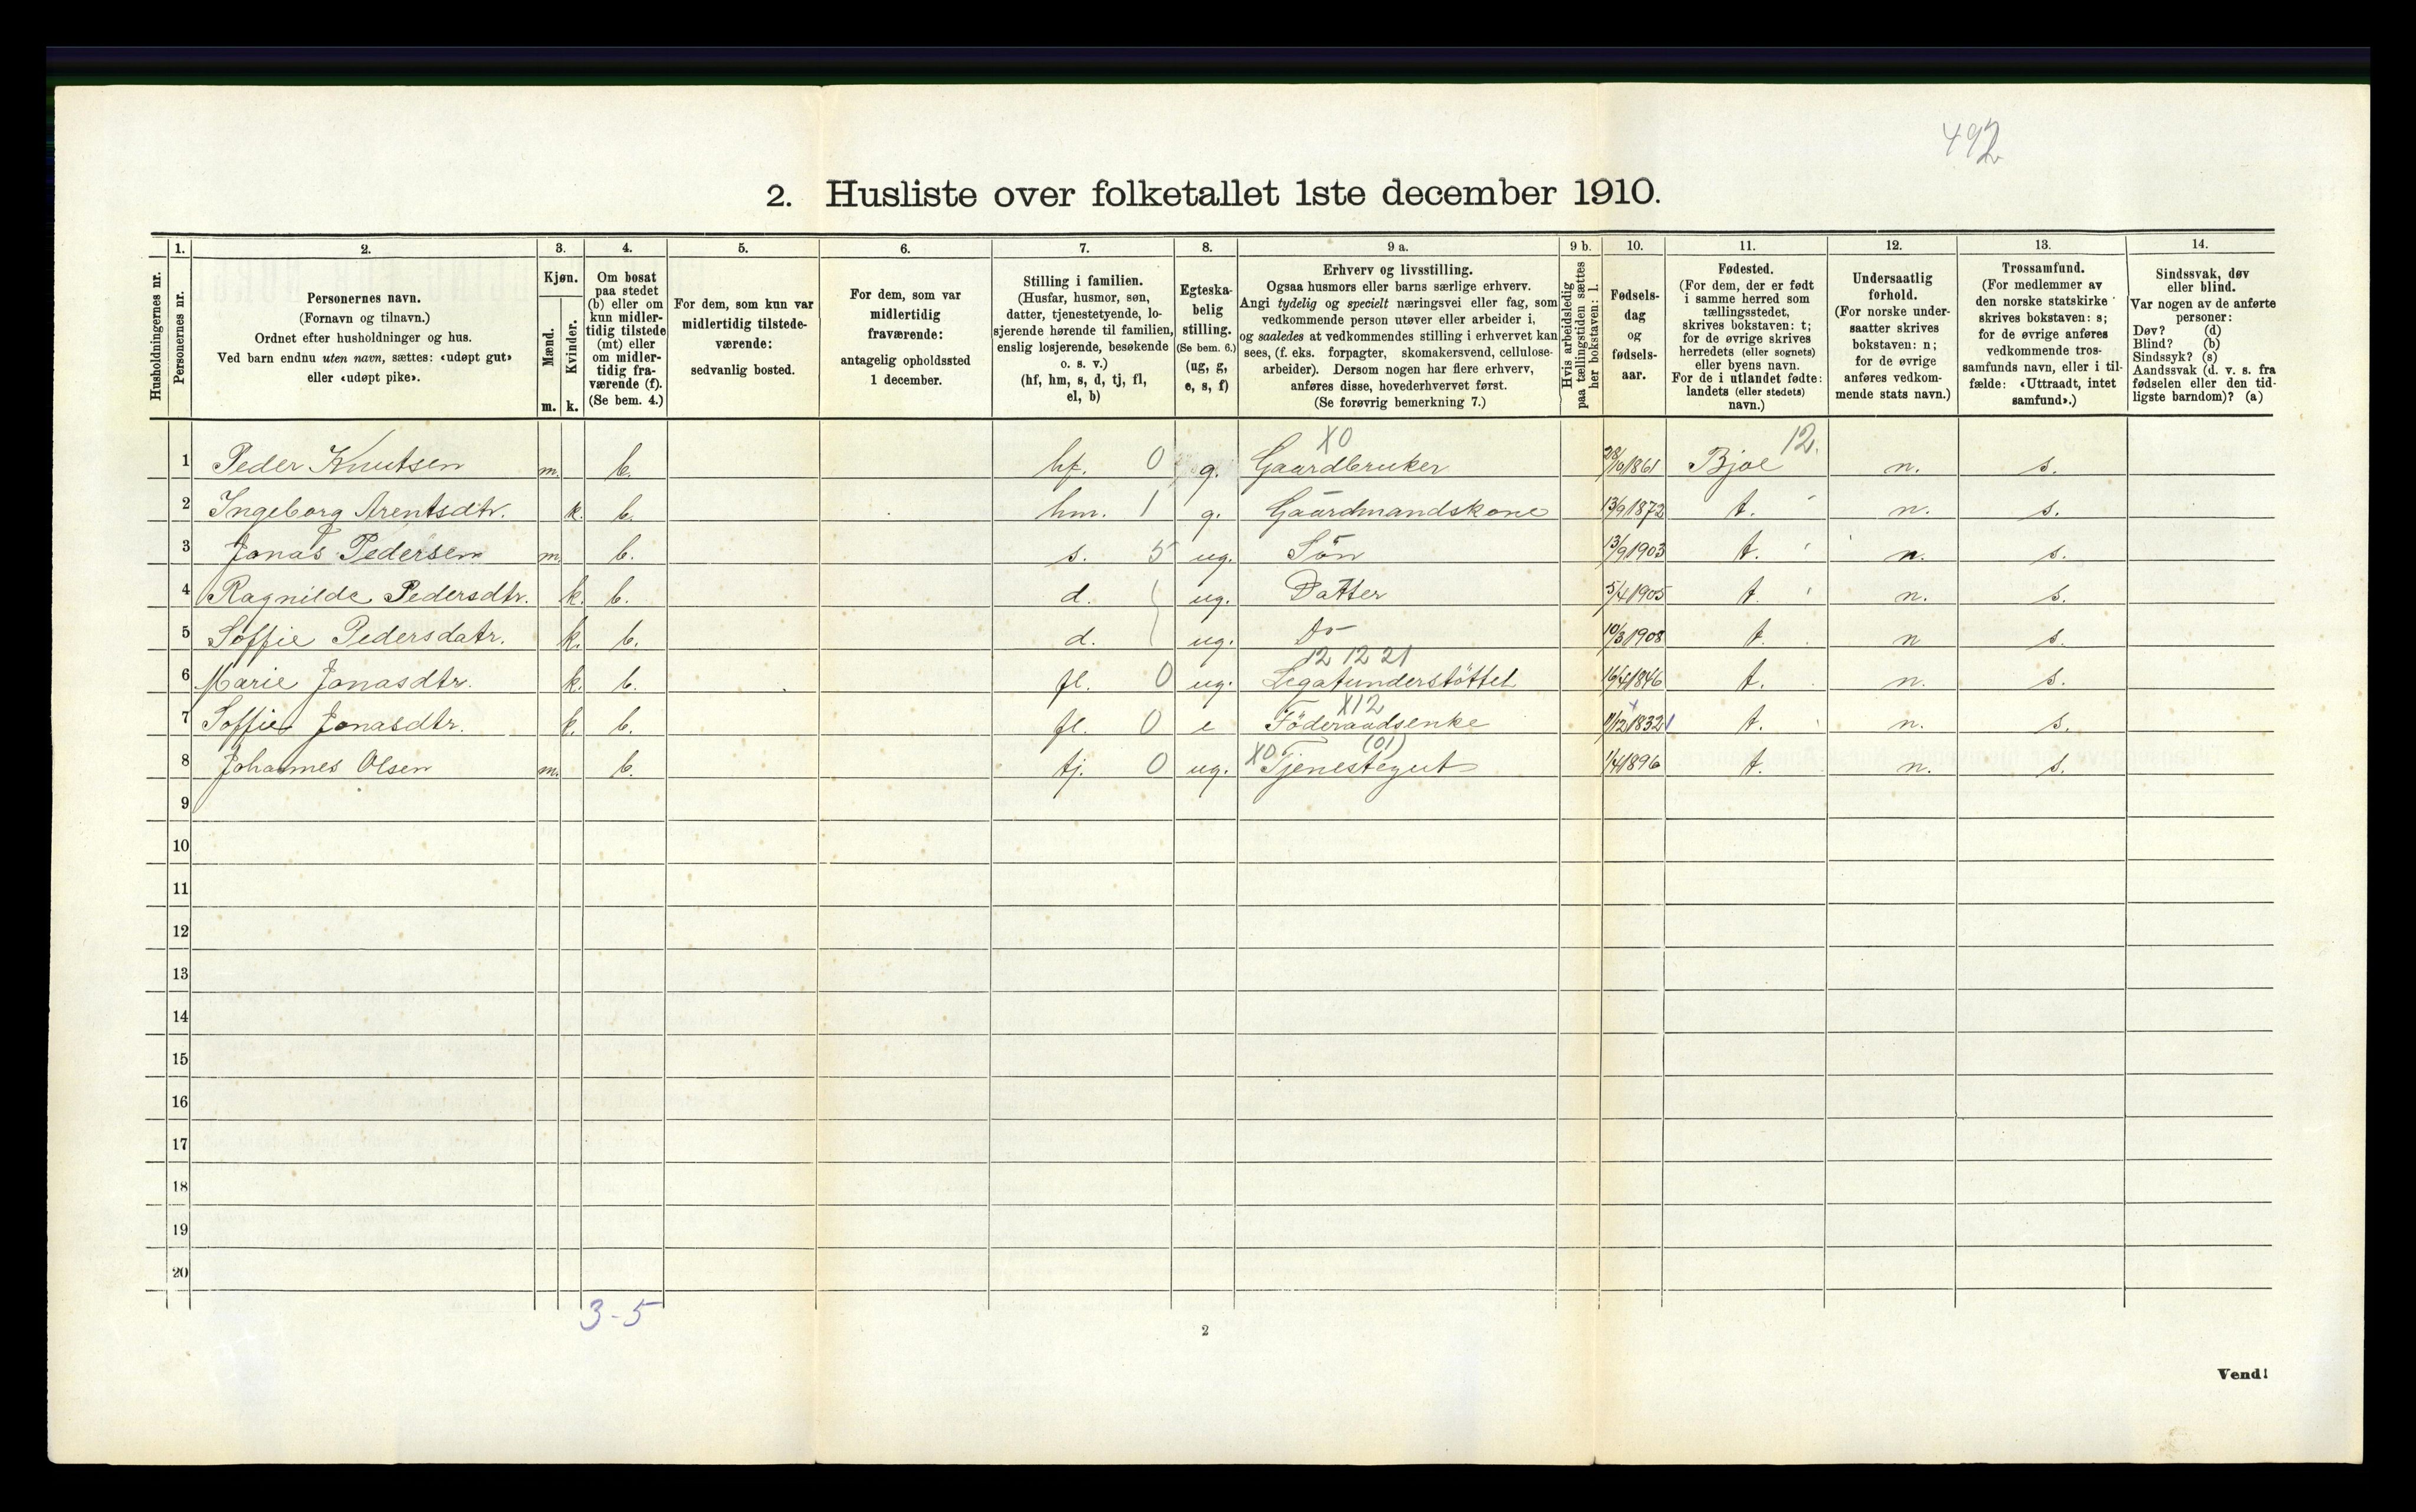 492
2. Husliste over folketallet 1ste december 1910.
Husholdningernes nr.
1.
Personernes nr.
2.
Personernes navn.
(Fornavn og tilnavn.)
Ordnet efter husholdninger og hus.
Ved barn endnu uten navn, sættes: «udøpt gut»
eller «udøpt pike».
3.
Kjøn.
Mænd.
Kvinder.
m. k.
4.
Om bosat
paa stedet
(b) eller om
kun midler-
tidig tilstede
(mt) eller
om midler-
tidig fra-
værende (f).
(Se bem. 4.)
5.
For dem, som kun var
midlertidig tilstede-
værende:
sedvanlig bosted.
6.
For dem, som var
midlertidig
fraværende:
antagelig opholdssted
1 december.
7.
Stilling i familien.
(Husfar, husmor, søn,
datter, tjenestetyende, lo-
sjerende hørende til familien,
enslig losjerende, besøkende
o. s. v.)
(hf, hm, s, d, tj, fl,
el, b)
8.
Egteska-
belig
stilling.
(Se bem. 6.)
(ug, g,
e, s, f)
9 a.
Erhverv og livsstilling.
Ogsaa husmors eller barns særlige erhverv.
Angi tydelig og specielt næringsvei eller fag, som
vedkommende person utøver eller arbeider i,
og saaledes at vedkommendes stilling i erhvervet kan
sees, (f. eks. forpagter, skomakersvend, cellulose-
arbeider). Dersom nogen har flere erhverv,
anføres disse, hovederhvervet først.
(Se forøvrig bemerkning 7.)
9 b.
Hvis arbeidsledig
paa tællingstiden sættes
her bokstaven: l.
10.
Fødsels-
dag
og
fødsels-
aar.
11.
Fødested.
(For dem, der er født
i samme herred som
tællingsstedet,
skrives bokstaven: t;
for de øvrige skrives
herredets (eller sognets)
eller byens navn.
For de i utlandet fødte:
landets (eller stedets)
navn.)
12.
Undersaatlig
forhold.
(For norske under-
saatter skrives
bokstaven: n;
for de øvrige
anføres vedkom-
mende stats navn.)
13.
Trossamfund.
(For medlemmer av
den norske statskirke
skrives bokstaven: s;
for de øvrige anføres
vedkommende tros-
samfunds navn, eller i til-
fælde: «Uttraadt, intet
samfund».)
14.
Sindssvak, døv
eller blind.
Var nogen av de anførte
personer:
Døv? (d)
Blind? (b)
Sindssyk? (s)
Aandssvak (d. v. s. fra
fødselen eller den tid-
ligste barndom)? (a)
X0 12.
1 Peder Knutsen m. b. hf. 0 g. Gaardbruker 1861 Bjoe n. s.
2 Ingeborg Arentsdtr. k. b. hm. 1 g. Gaardmandskone 13/9 1872 t. n. s.
3 Jonas Pedersen m. b. s. 5 ug. Sön 13/9 1903 t. n. s.
4 Ragnilde Pedersdtr. k. b. d. ug. Datter 5/4 1905 t. n. s.
5 Soffie Pedersdatr. k. b. d. ug. Do- 10/3 1908 t. n s.
12 12 21
6 Marie Jonasdtr. k. b. fl. 0 ug. Legatunderstöttet 16/4 1846 t. n. s.
X12
7 Soffie Jonasdtr. k. b. fl. 0 e Föderaadsenke 11/12 1832 t. n. s.
X0 (01)
8 Johannes Olsen m. b. tj. 0 ug. Tjenestegut 1/4 1896 t. n. s.
9
10
11
12
13
14
15
16
17
18
19
20
3-5
2
Vend!